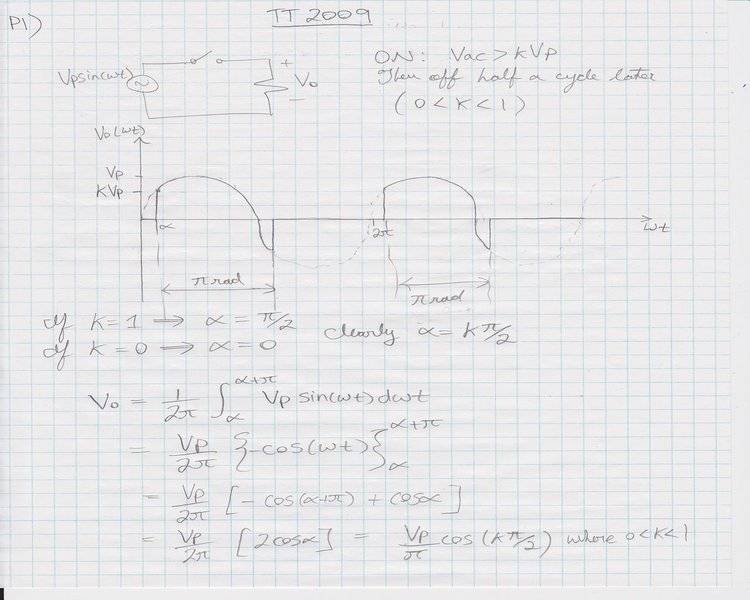 P1)
TT 2009
Vpsin(ωt)
+
Vo
−
ON: Vac > KVp
Then off half a cycle later
(0 < K < 1)
Vo(ωt)
Vp
KVp
α
2π
ωt
π rad
π rad
If K = 1 ⟹ α = π/2
If K = 0 ⟹ α = 0
clearly α = Kπ/2
Vo = 1/2π ∫_α^{α+π} Vp sin(ωt) dωt
= Vp/2π {-cos(ωt)}_α^{α+π}
= Vp/2π [-cos(α+π) + cosα]
= Vp/2π [2cosα] = Vp/π cos(Kπ/2) where 0<K<1